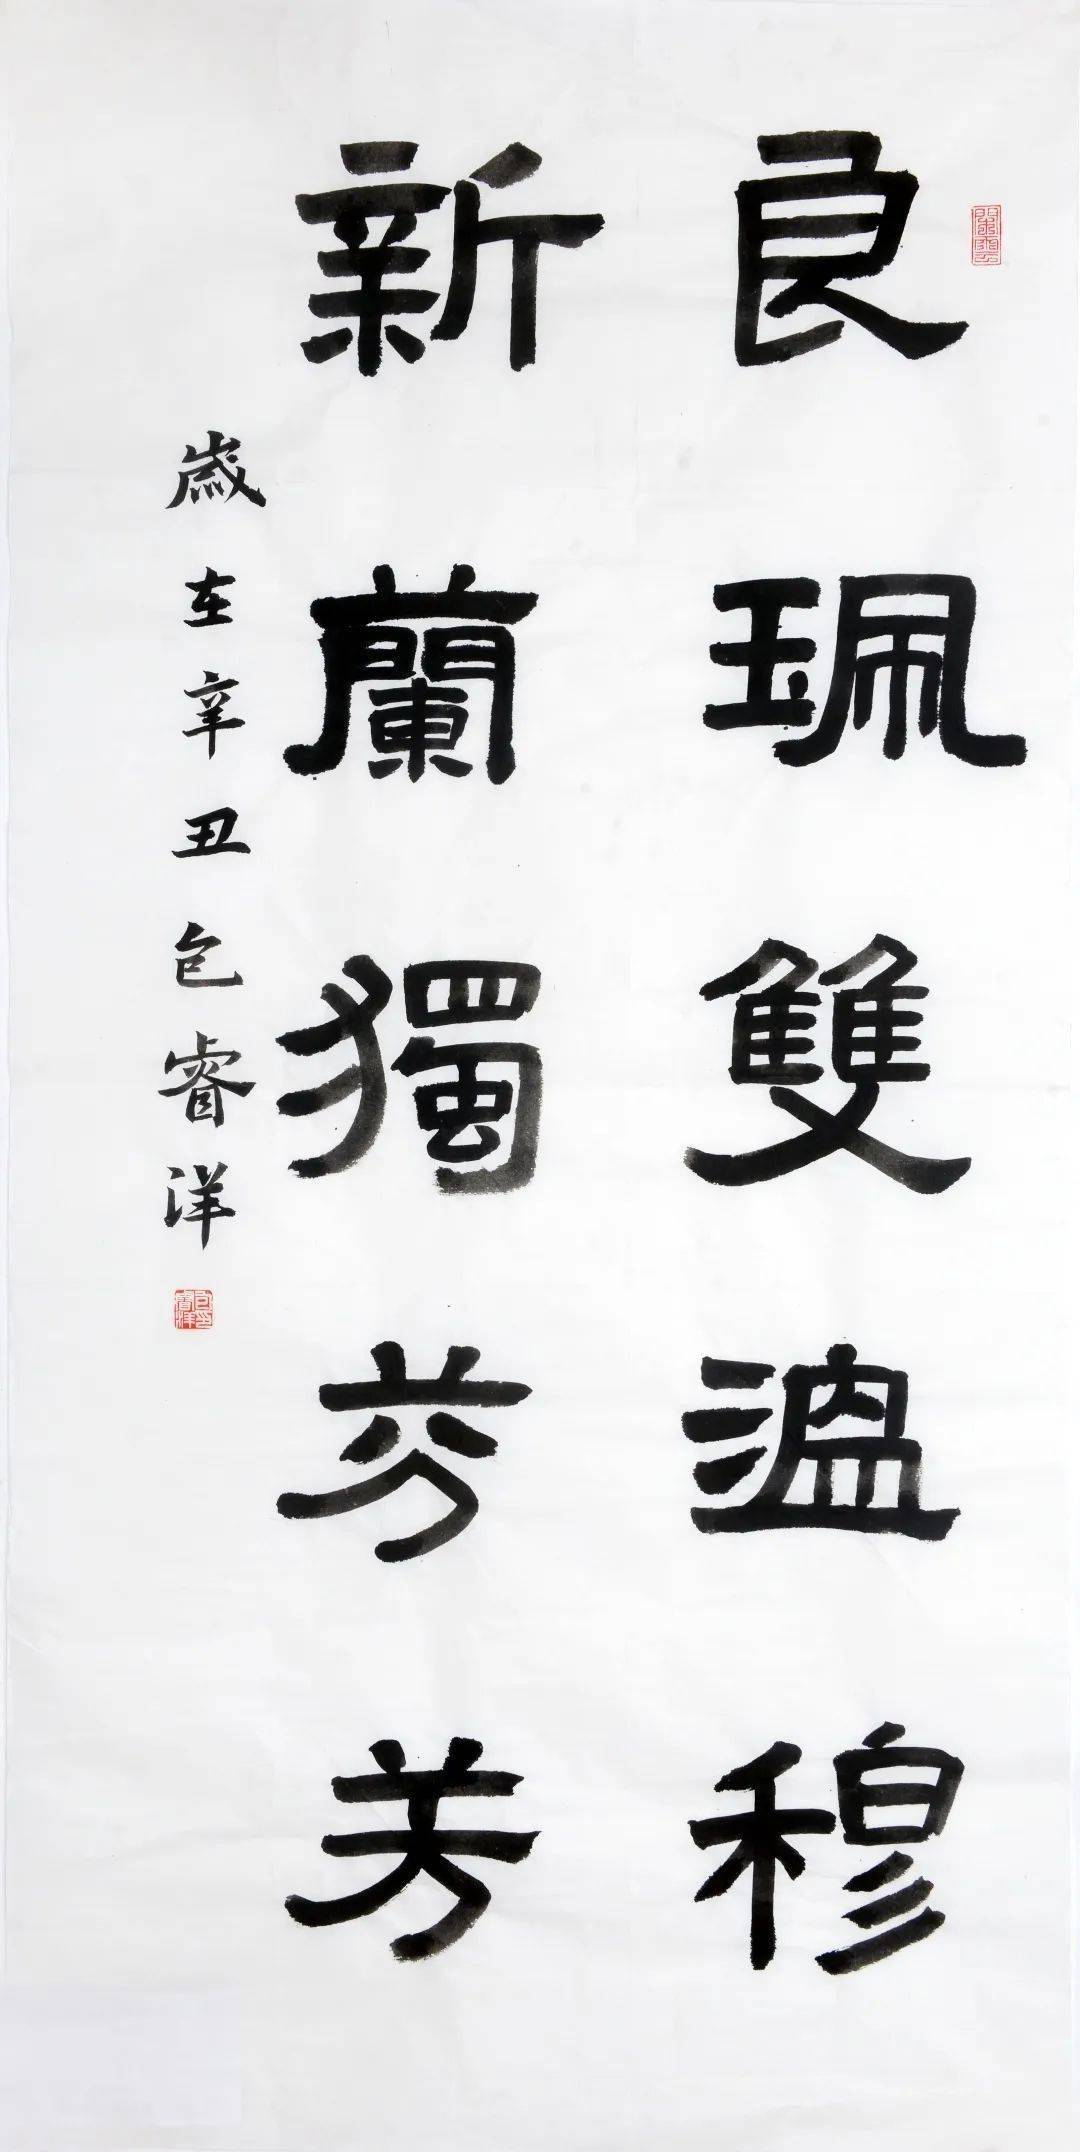 良珮雙溫穆
新蘭獨芬芳
歲在辛丑包睿洋